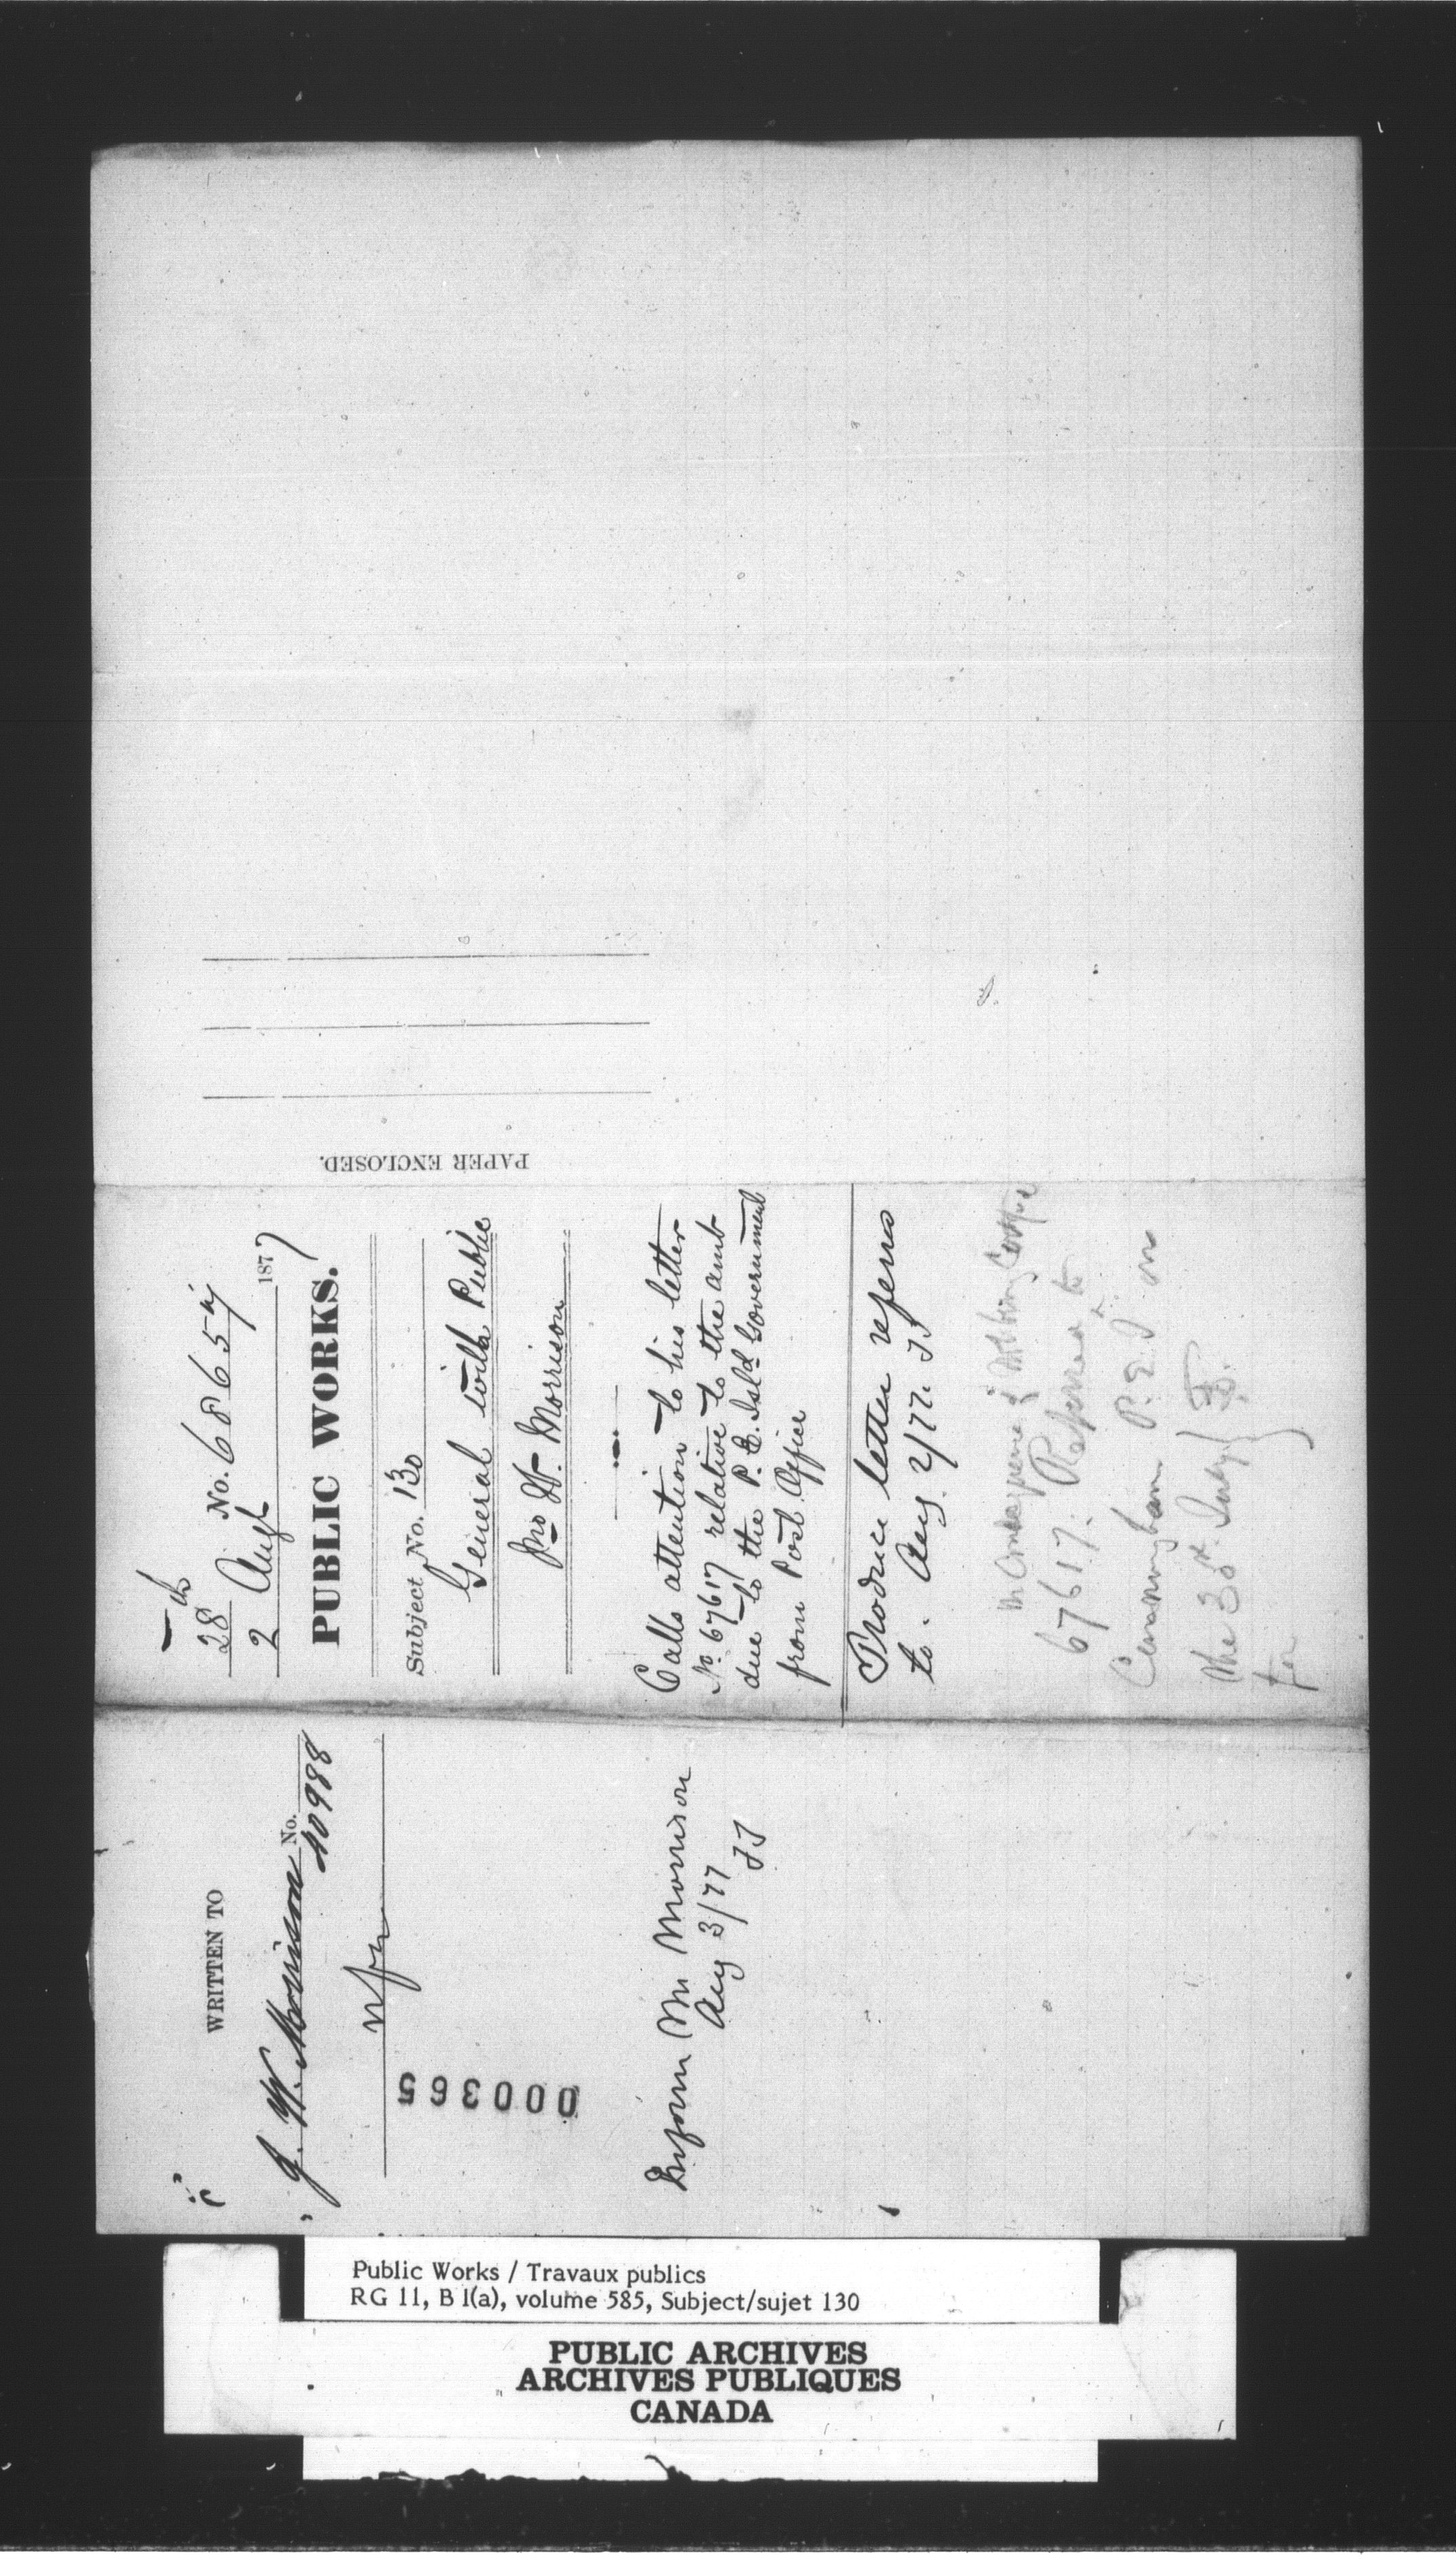 PAPER ENCLOSED.
28 No. 68657
2 Augt 1877
PUBLIC WORKS.
Subject No. 130
General with Public
Jno W. Morrison
Calls attention to his letter
No 67617 relative to the amt
due to the P. E. Isld Government
from Post Office
Produce letter referrs
to. Aug 2/77. TT
67617. Referred to
Cunningham P.E.I on
the 30th July
WRITTEN TO
J. W. Morrison No. 40988
000365
Inform Mr Morrison
Aug 3/77
TT
Public Works / Travaux publics
RG 11, B 1(a), volume 585, Subject/sujet 130
PUBLIC ARCHIVES
ARCHIVES PUBLIQUES
CANADA